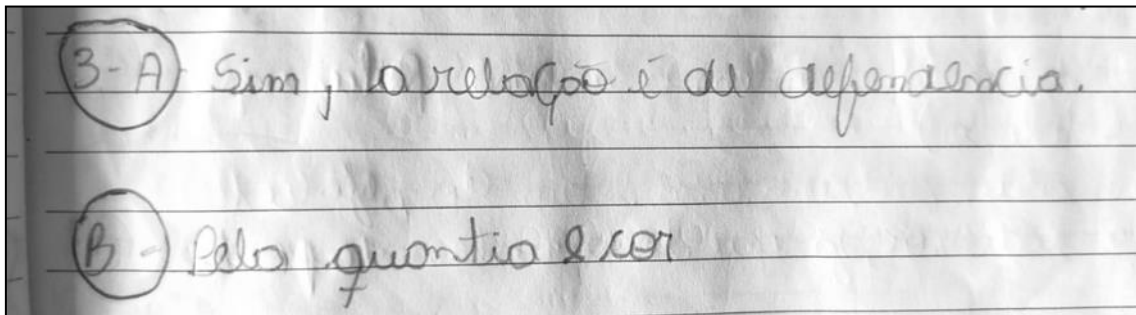 3-A) Sim, a relação é de dependencia.
B- Pela quantia e cor